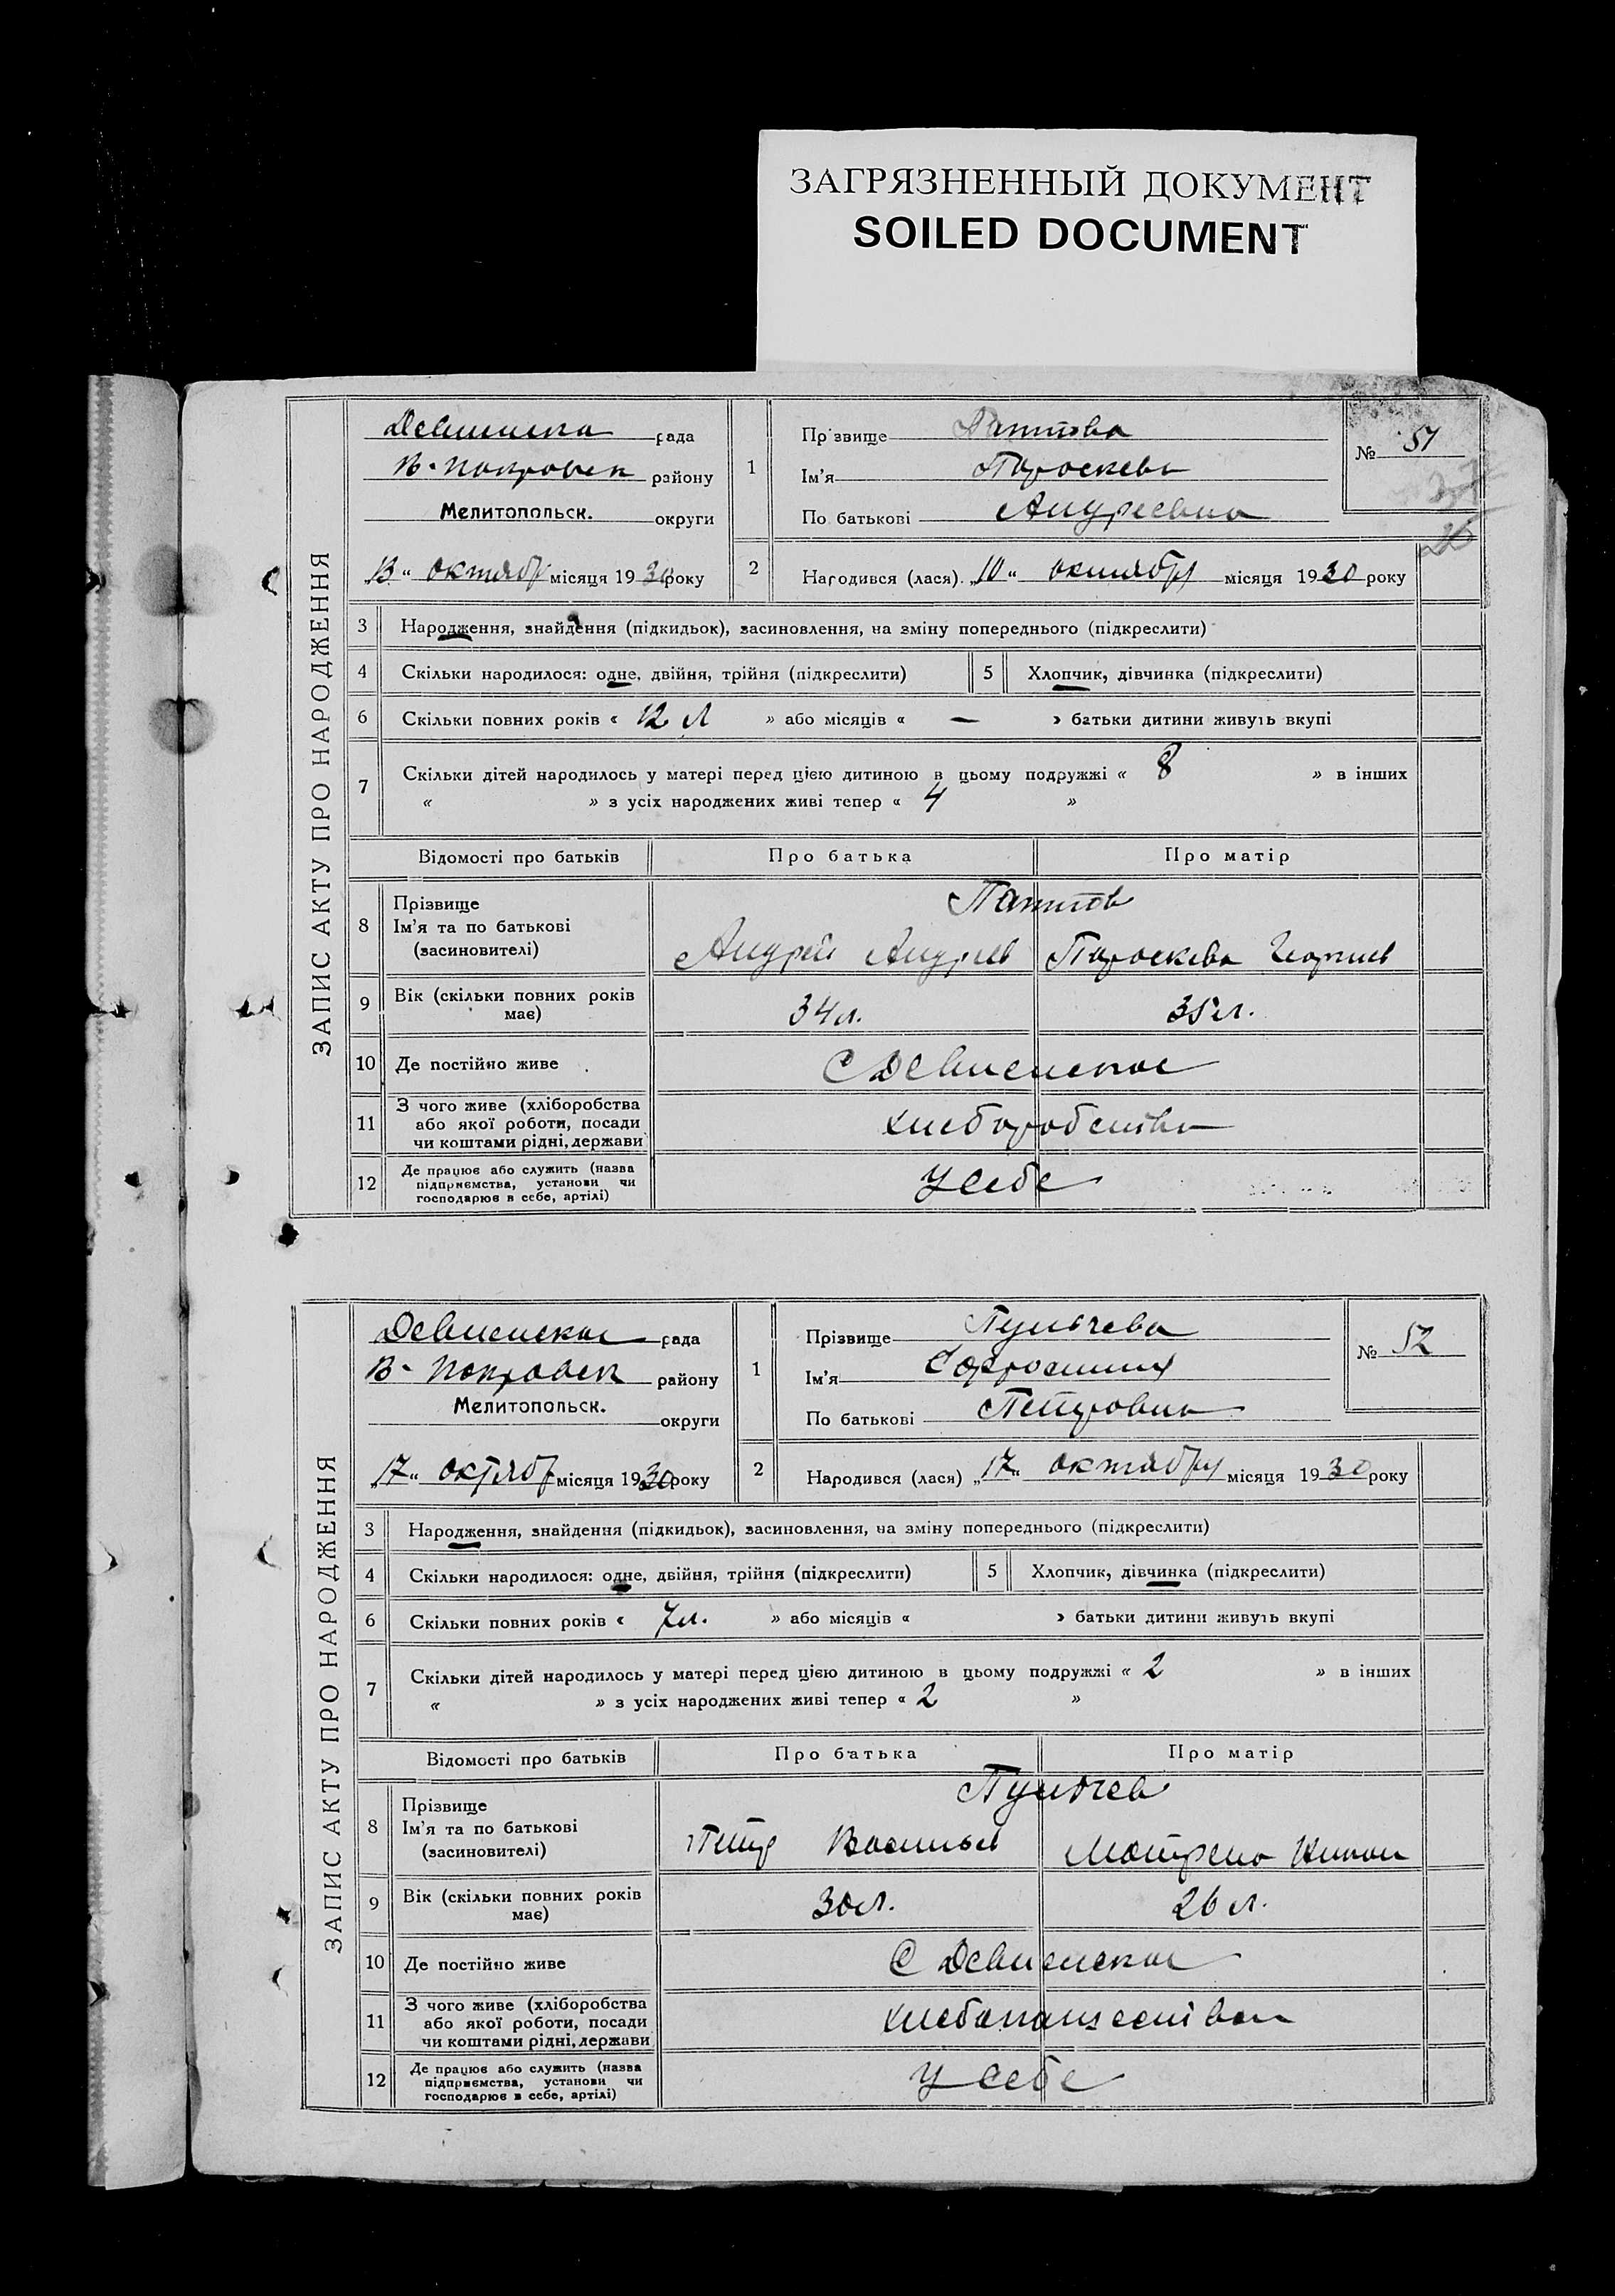 ЗАГРЯЗНЕННЫЙ ДОКУМЕНТ
SOILED DOCUMENT
ЗАПИС АКТУ ПРО НАРОДЖЕННЯ
рада
В-Покровск району
Мелитопольск. округи
"13" октябр місяця 1930 року
1
Прізвище
Ім'я Параскева
По батькові Андреевна
№ 51
2 Народився (лася) "10" октября місяця 1930 року
3 Народження, знайдення (підкидьок), засиновлення, на зміну попереднього (підкреслити)
4 Скільки народилося: одне, двійня, трійня (підкреслити) 5 Хлопчик, дівчинка (підкреслити)
6 Скільки повних років « 12 л » або місяців « — » батьки дитини живуть вкупі
7 Скільки дітей народилось у матері перед цією дитиною в цьому подружжі « 8 » в інших
« » з усіх народжених живі тепер « 4 »
Відомості про батьків Про батька Про матір
8 Прізвище
Ім'я та по батькові
(засиновителі)
Андрей Андреев Параскева Георгиев
9 Вік (скільки повних років має) 34 л. 35 л.
10 Де постійно живе С
11 З чого живе (хліборобства
або якої роботи, посади
чи коштами рідні, держави
хлеборобства
12 Де працює або служить (назва
підприємства, установи чи
господарює в себе, артілі)
У себе
ЗАПИС АКТУ ПРО НАРОДЖЕННЯ
рада
В-Покровск району
Мелитопольск. округи
"17" октябр місяця 1930 року
1
Прізвище
Ім'я
По батькові Петровна
№ 52
2 Народився (лася) "17" октября місяця 1930 року
3 Народження, знайдення (підкидьок), засиновлення, на зміну попереднього (підкреслити)
4 Скільки народилося: одне, двійня, трійня (підкреслити) 5 Хлопчик, дівчинка (підкреслити)
6 Скільки повних років « 7 л. » або місяців « » батьки дитини живуть вкупі
7 Скільки дітей народилось у матері перед цією дитиною в цьому подружжі « 2 » в інших
« » з усіх народжених живі тепер « 2 »
Відомості про батьків Про батька Про матір
8 Прізвище
Ім'я та по батькові
(засиновителі)
Петр Васильев Матрена
9 Вік (скільки повних років має) 30 л. 26 л.
10 Де постійно живе С
11 З чого живе (хліборобства
або якої роботи, посади
чи коштами рідні, держави
12 Де працює або служить (назва
підприємства, установи чи
господарює в себе, артілі)
У себе